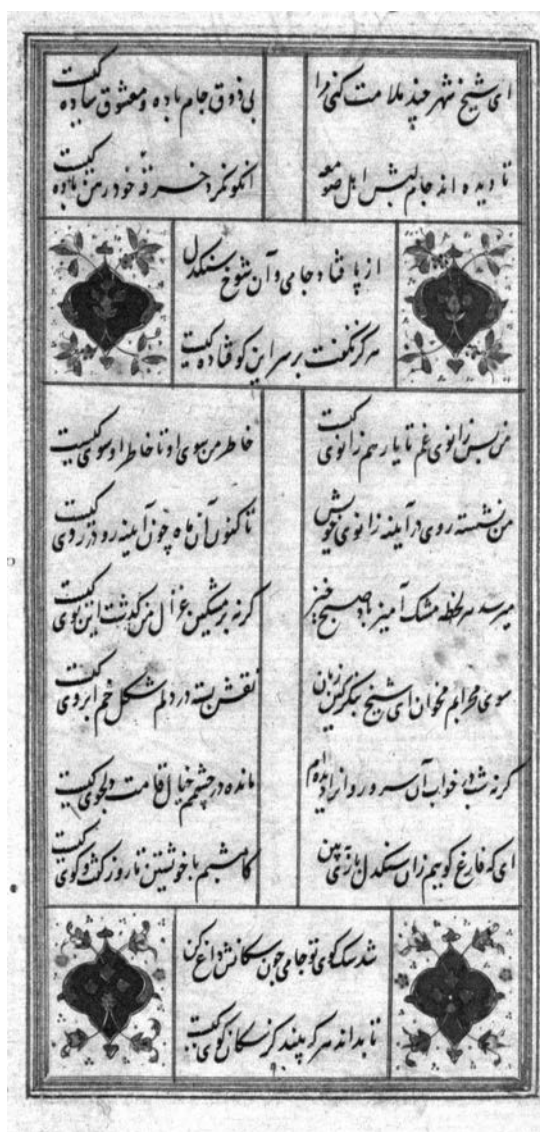 ای شیخ شهر چند ملامت کنی مرا
بی ذوق جام باده و معشوق ساده کیست
تا دیده اند جام لبش اهل صومعه
آنکو نکرد خرقه خود رهن باده کیست
از پا فتاد جامی و آن شوخ سنکدل
هرکز نکفت بر سر این کو فتاده کیست
من بسر زانوی غم تا یار هم زانوی کیست
خاطر من سوی او تا خاطر او سوی کیست
من نشسته روی در آیینه زانوی خویش
تا کنون آن ماه چون آیینه رو در روی کیست
میرسد هر لحظه مشک آمیز باد صبح خیز
کرنه بر مشکین غزال من کذشت این بوی کیست
سوی محرابم مخوان ای شیخ بنکر کین زمان
نقش بسته در دلم شکل خم ابروی کیست
کرنه شب در خواب آن سرو روان را دیده ام
مانده در چشمم خیال قامت دلجوی کیست
ای که فارغ کوییم زان سنکدل بازآ ببین
کامشبم با خویشتن تا روز کفت و کوی کیست
شد سک کوی تو جامی چون سکانش داغ کن
تا بداند هر که بیند کز سکان کوی کیست